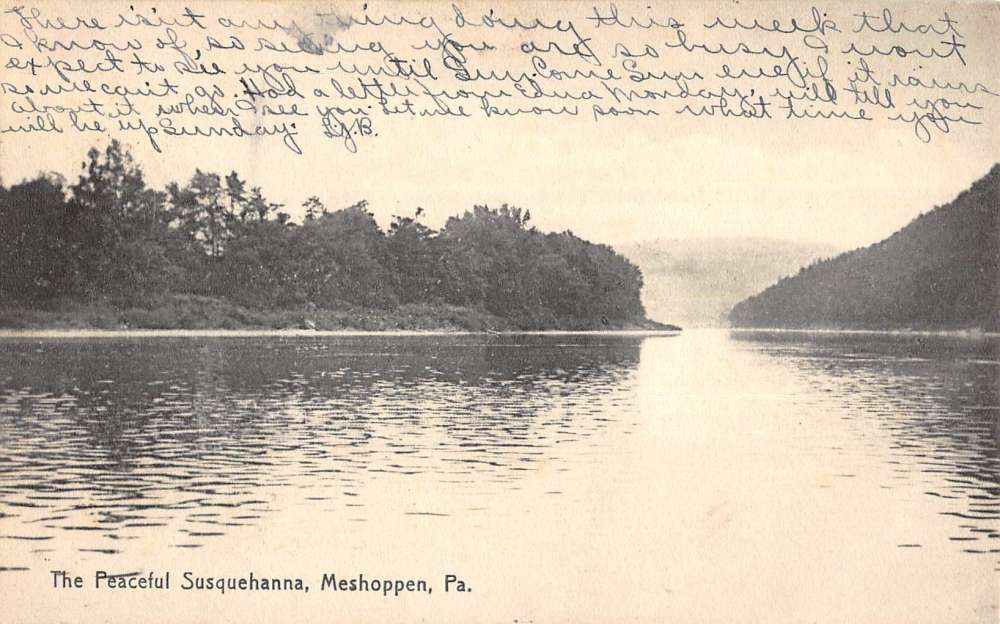 There isn't any thing doing this week that
I know of, so seeing you are so busy I won't
expect to see you until Sun. Come Sun even if it rains
so we can't go. Had a letter from Edna Monday, will tell you
about it when I see you. Let me know soon what time you
will be up Sunday. L.J.B.
The Peaceful Susquehanna, Meshoppen, Pa.